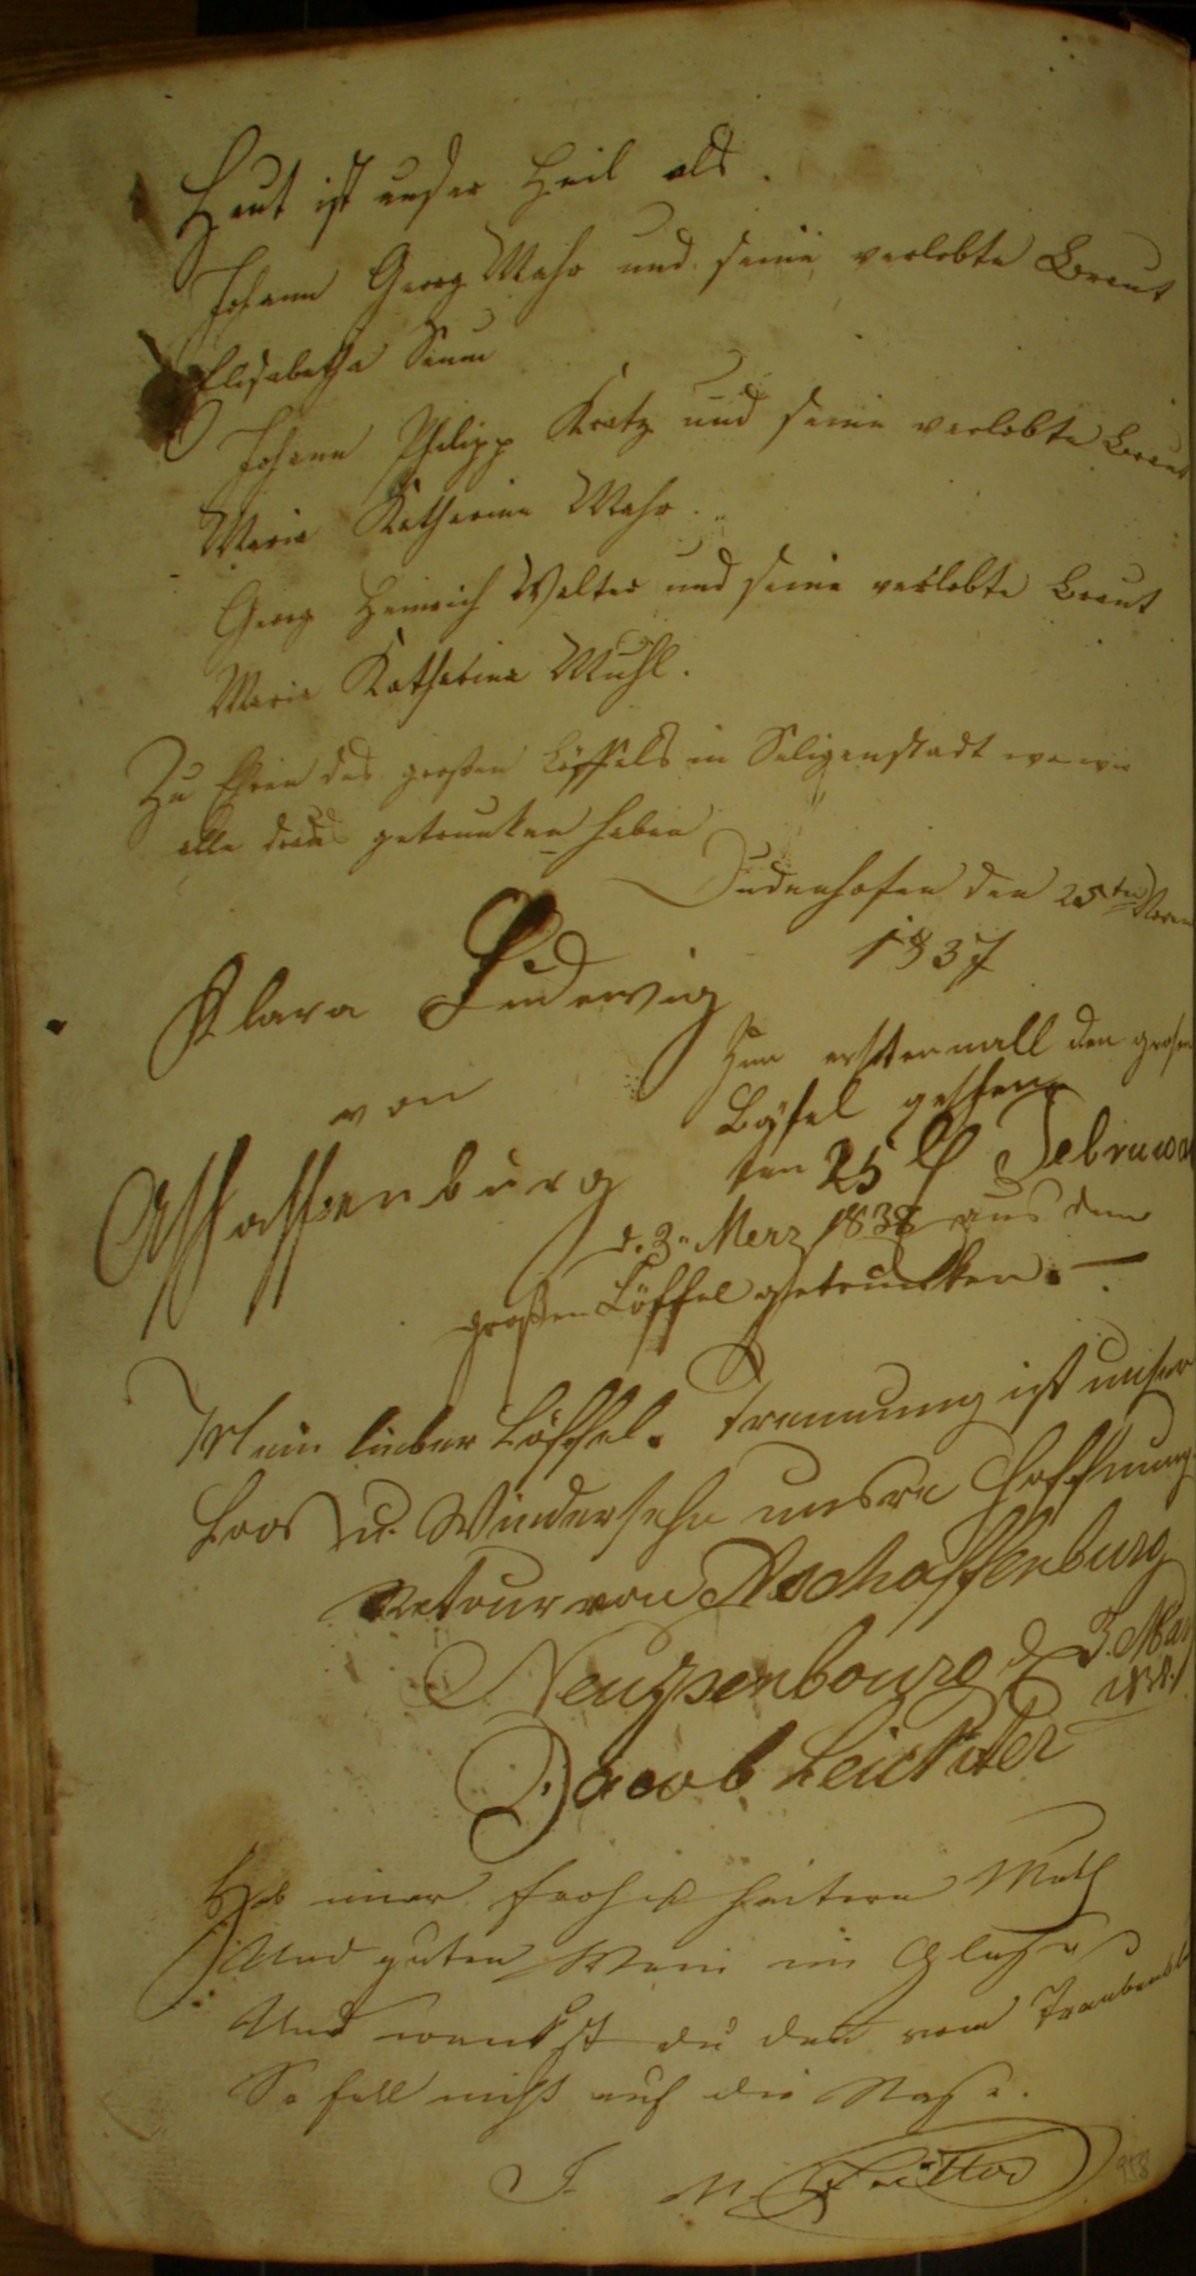 Heut ist unser Heil als.
Johann Georg Mahr und seine verlobte Braut
Elisabetha
Johann Philipp Kratz und seine verlobte Braut
Maria Katharina Mahr.
Georg Heinrich Walter und seine verlobte Braut
Maria Katharina Muhl.
Zu Ehren des großen Löffels in Seligenstadt wo wir
alle draus getrunken haben
Dudenhofen den 25ten
1837
Klara Ludewig
von
Aschaffenburg
Zum erstenmall den grosen
Löfel gesehen
den 25 Februwa
d. 3n Merz 1838 aus dem
großen Löffel getrunken. —
Mein lieber Löffel. Trennung ist unser
Loos u. Wiedersehn unsre Hoffnung.
Retour von Aschaffenburg
d 3.
Jacob
Hab imer froh u heitern Muth
Und guten Wein im Glase
Und wankst du dan vom
So fall nicht auf die Nase.